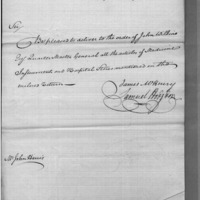 Sir,
Be pleased to deliver to the order of John Wilkins
Esq Quarter Master General all the articles of Medicine
Instruments and Hospital Stores mentioned in the
enclosed
James McHenry
Samuel Hodgdon
Mr John Harris